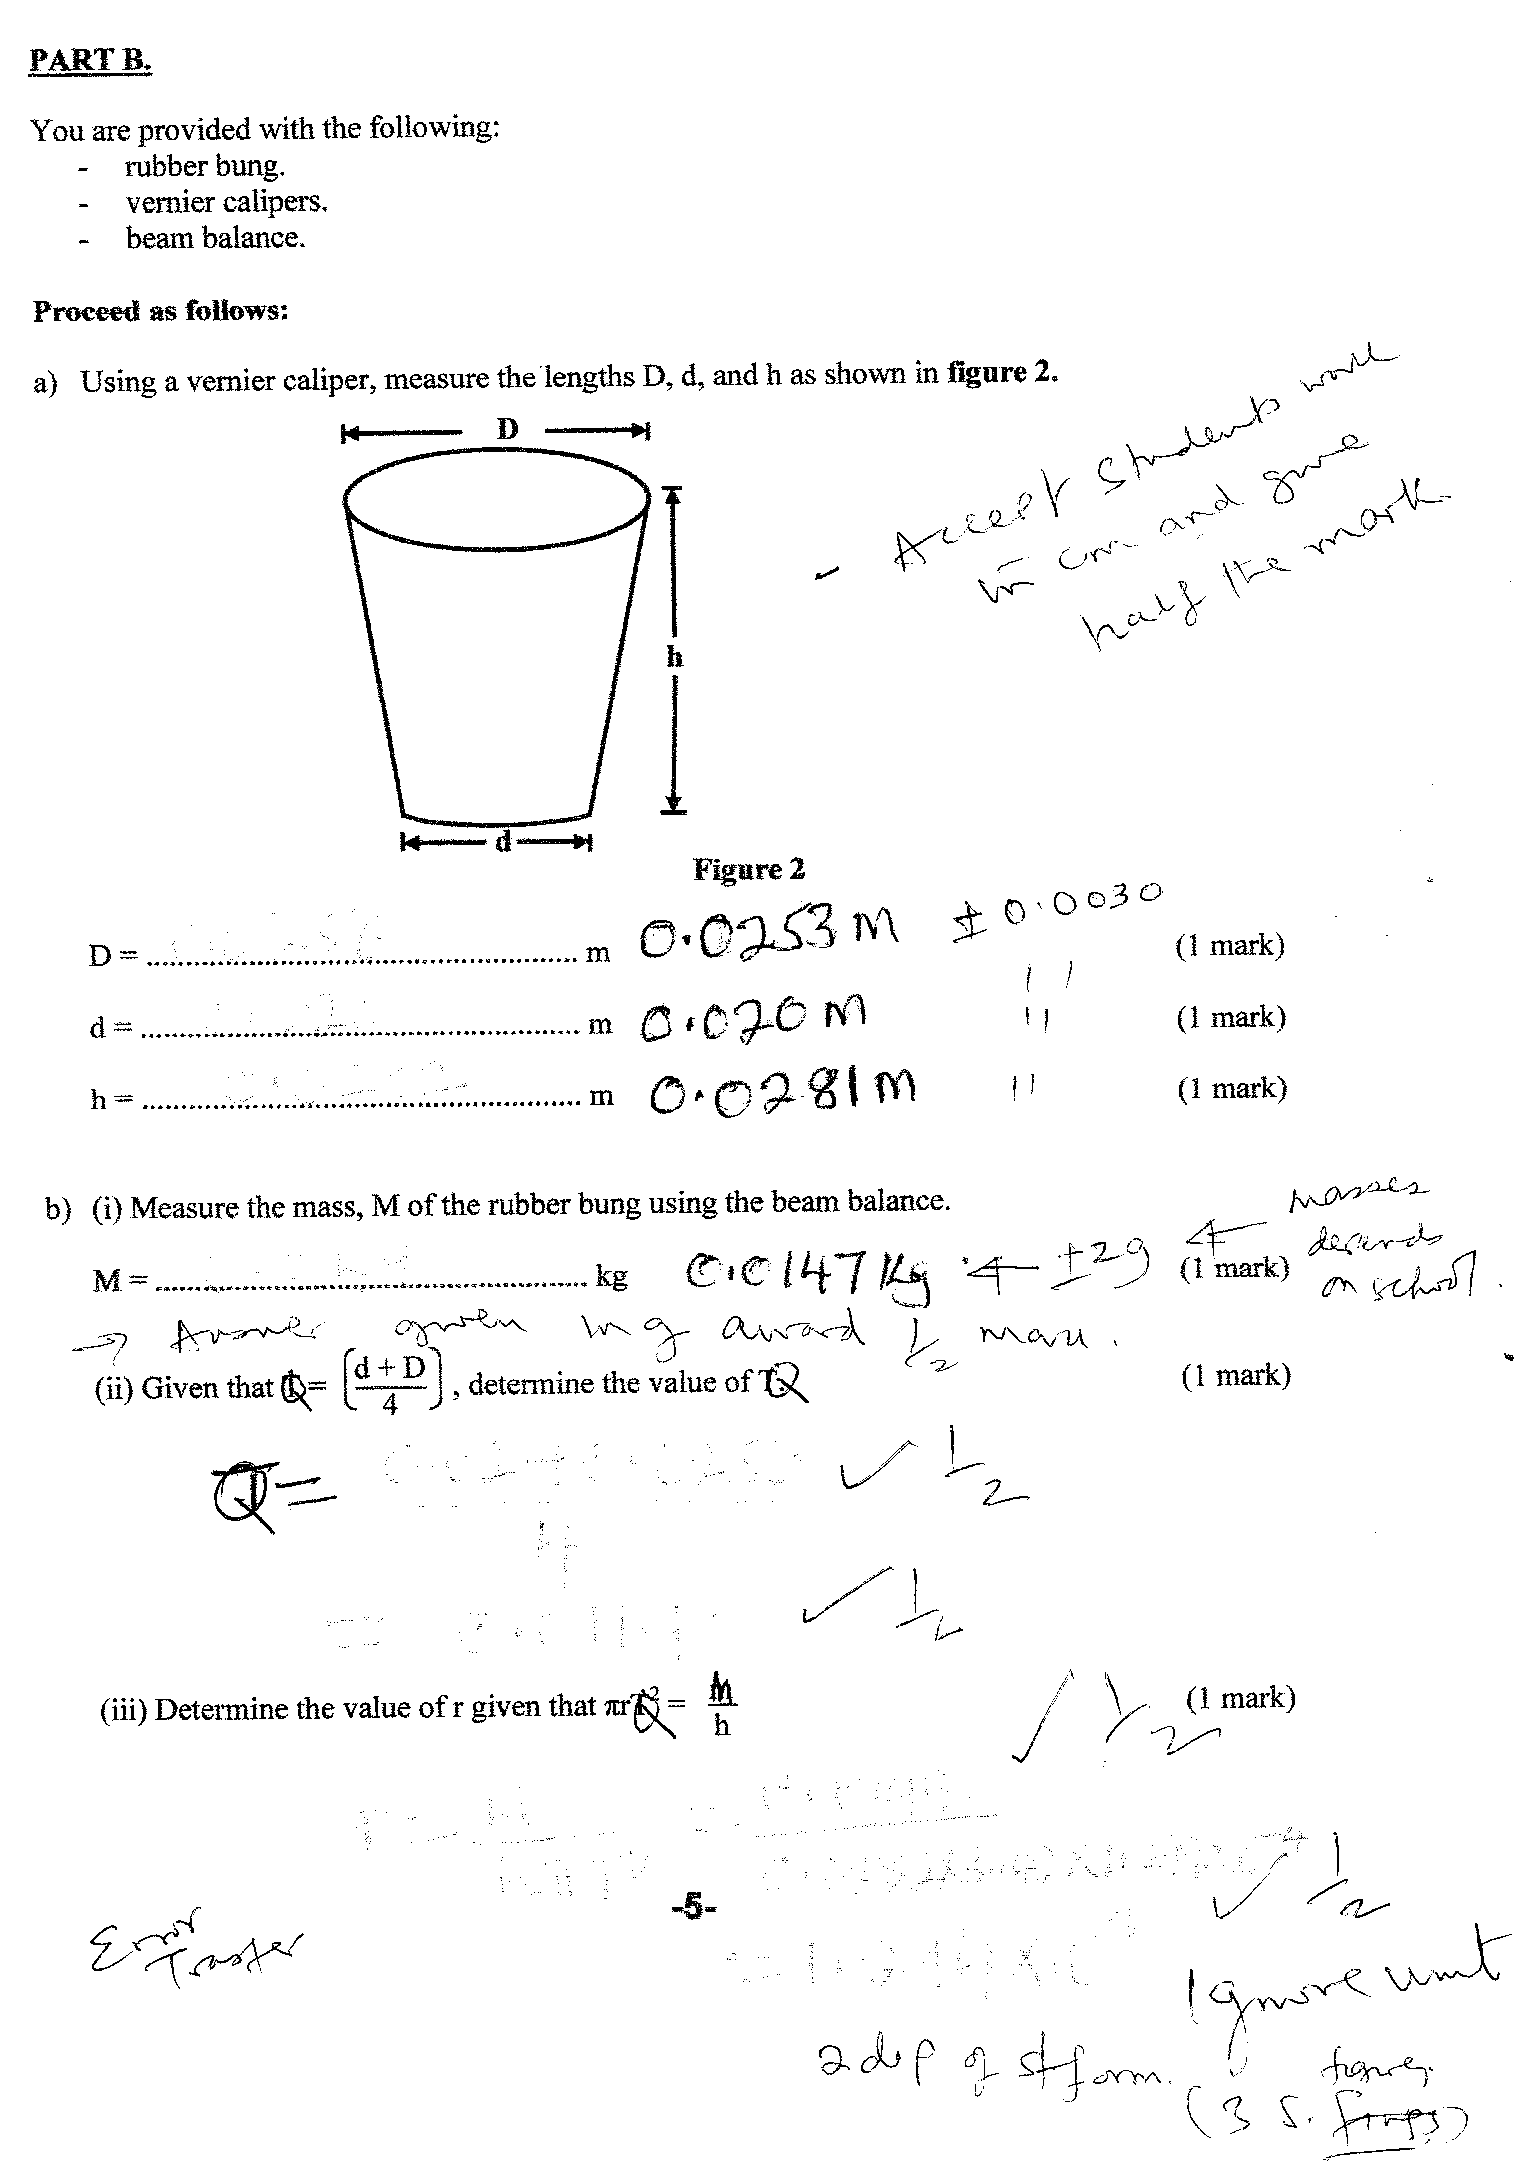 PART B.
You are provided with the following:
- rubber bung.
- vernier calipers.
- beam balance.
Proceed as follows:
a) Using a vernier caliper, measure the lengths D, d, and h as shown in figure 2.
D
h
d
- Accept students work
in cm and give
half the mark
Figure 2
D = ........................................ m 0.0253 M ± 0.0030 (1 mark)
d = ........................................ m 0.020 M " (1 mark)
h = ........................................ m 0.0281 M " (1 mark)
b) (i) Measure the mass, M of the rubber bung using the beam balance.
M = ........................................ kg 0.0147 kg ← ±2g ← (1 mark)
masses
depends
on school.
→ Answer given in g award 1/2 mark.
(ii) Given that Q = [(d + D)/4], determine the value of Q (1 mark)
Q =
✓ 1/2
4
=
✓ 1/2
(iii) Determine the value of r given that πrQ² = M/h (1 mark)
✓ 1/2
✓ 1/2
-5-
Error
Transfer
Ignore unit
2 d.p of st form.
(3 s. figures)